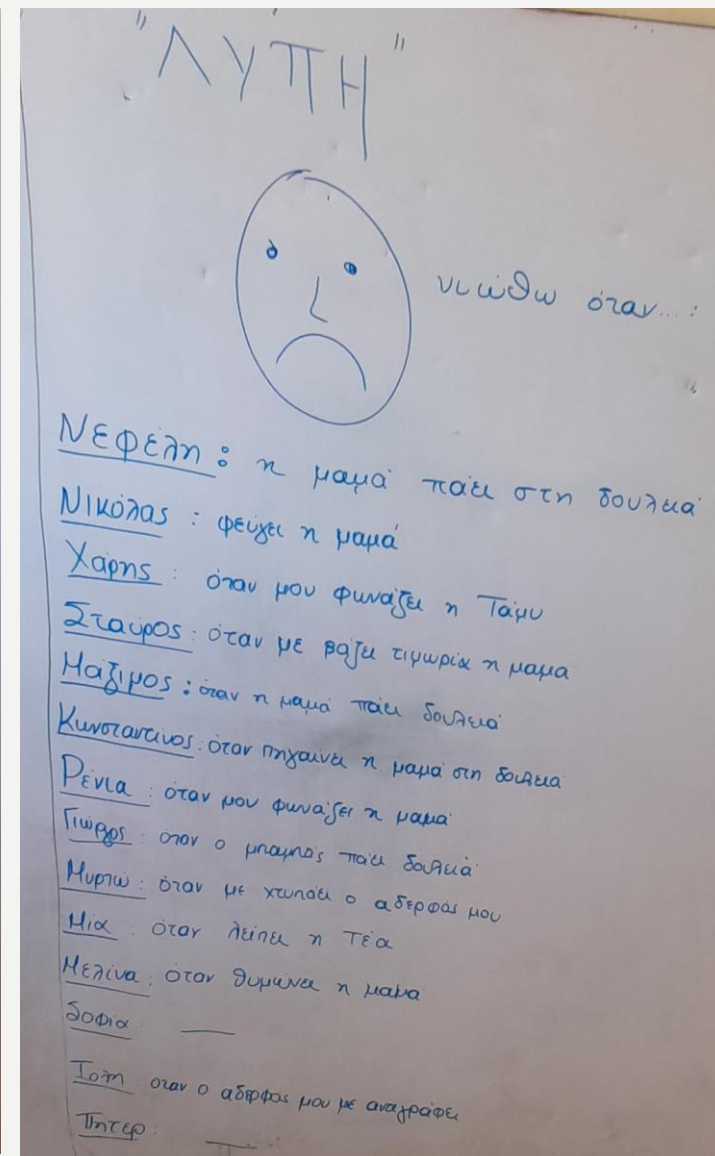 "ΛΥΠΗ"
νιώθω όταν...:
Νεφέλη: η μαμά πάει στη δουλειά
Νικόλας: φεύγει η μαμά
Χάρης: όταν μου φωνάζει η Τάμυ
Σταύρος: όταν με βάζει τιμωρία η μαμα
Μάξιμος: όταν η μαμά πάει δουλειά
Κωνσταντίνος: όταν πηγαίνει η μαμά στη δουλειά
Ρένια: όταν μου φωνάζει η μαμά
Γιώργος: όταν ο μπαμπάς πάει δουλειά
Μυρτώ: όταν με χτυπάει ο αδερφός μου
Μία: όταν λείπει η Τέα
Μελίνα: όταν θυμώνει η μαμά
Σοφία: —
Ιόλη: οταν ο αδερφός μου με
Πητερ: —